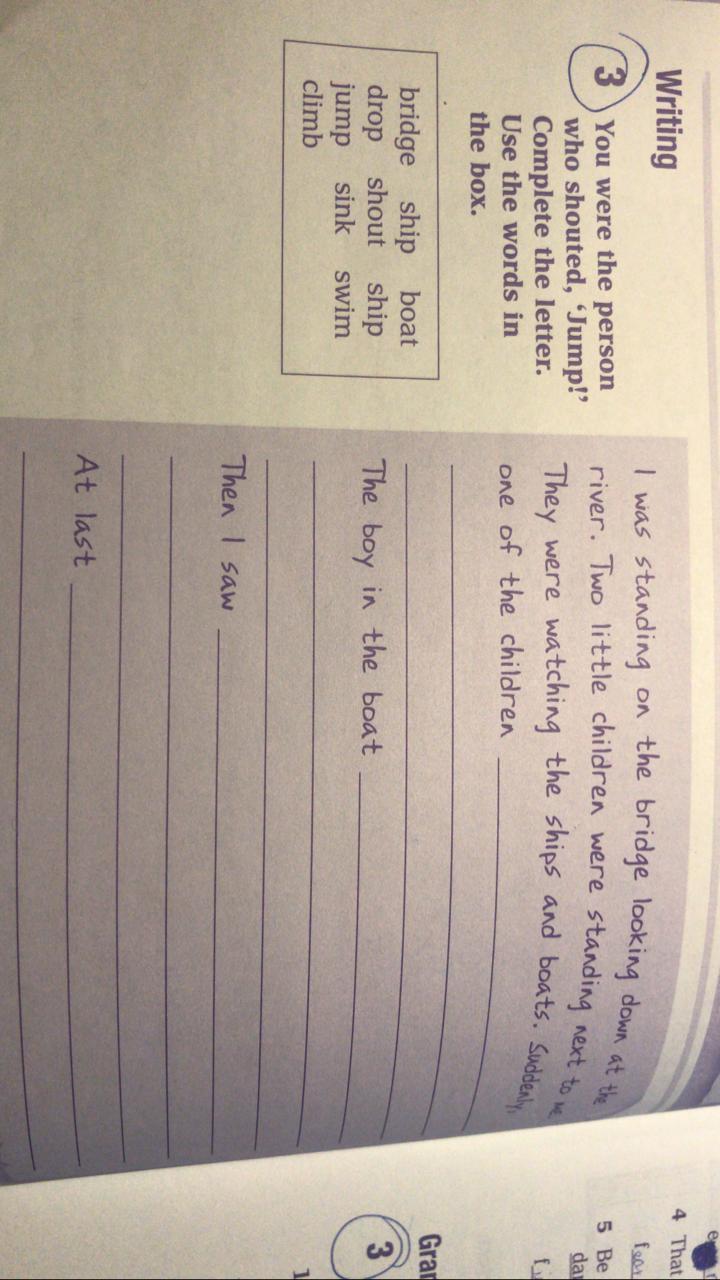 Writing
3 You were the person
who shouted, ‘Jump!’
Complete the letter.
Use the words in
the box.
bridge ship boat
drop shout ship
jump sink swim
climb
I was standing on the bridge looking down at the
river. Two little children were standing next to me.
They were watching the ships and boats. Suddenly,
one of the children
The boy in the boat
Then I saw
At last
4 That
5 Be
Gran
3
1